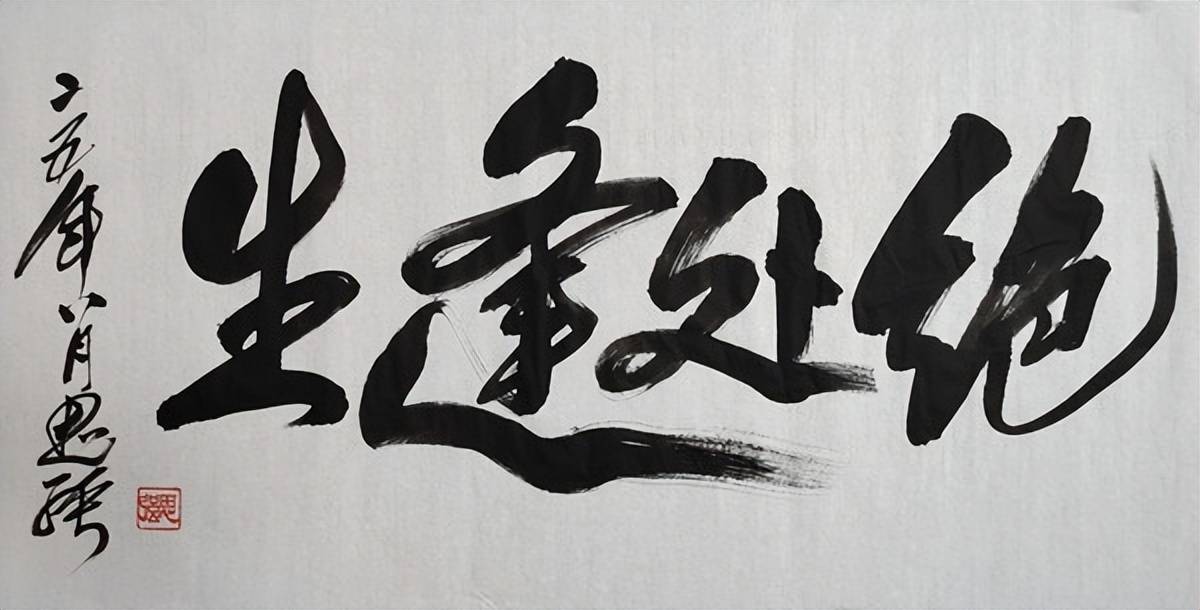 绝处逢生
二五年八月思